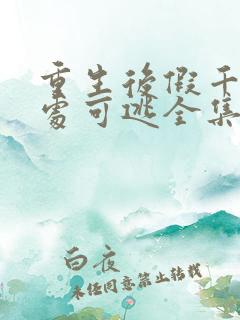 重生後假千
處可逃全集
白夜
未经同意禁止转载